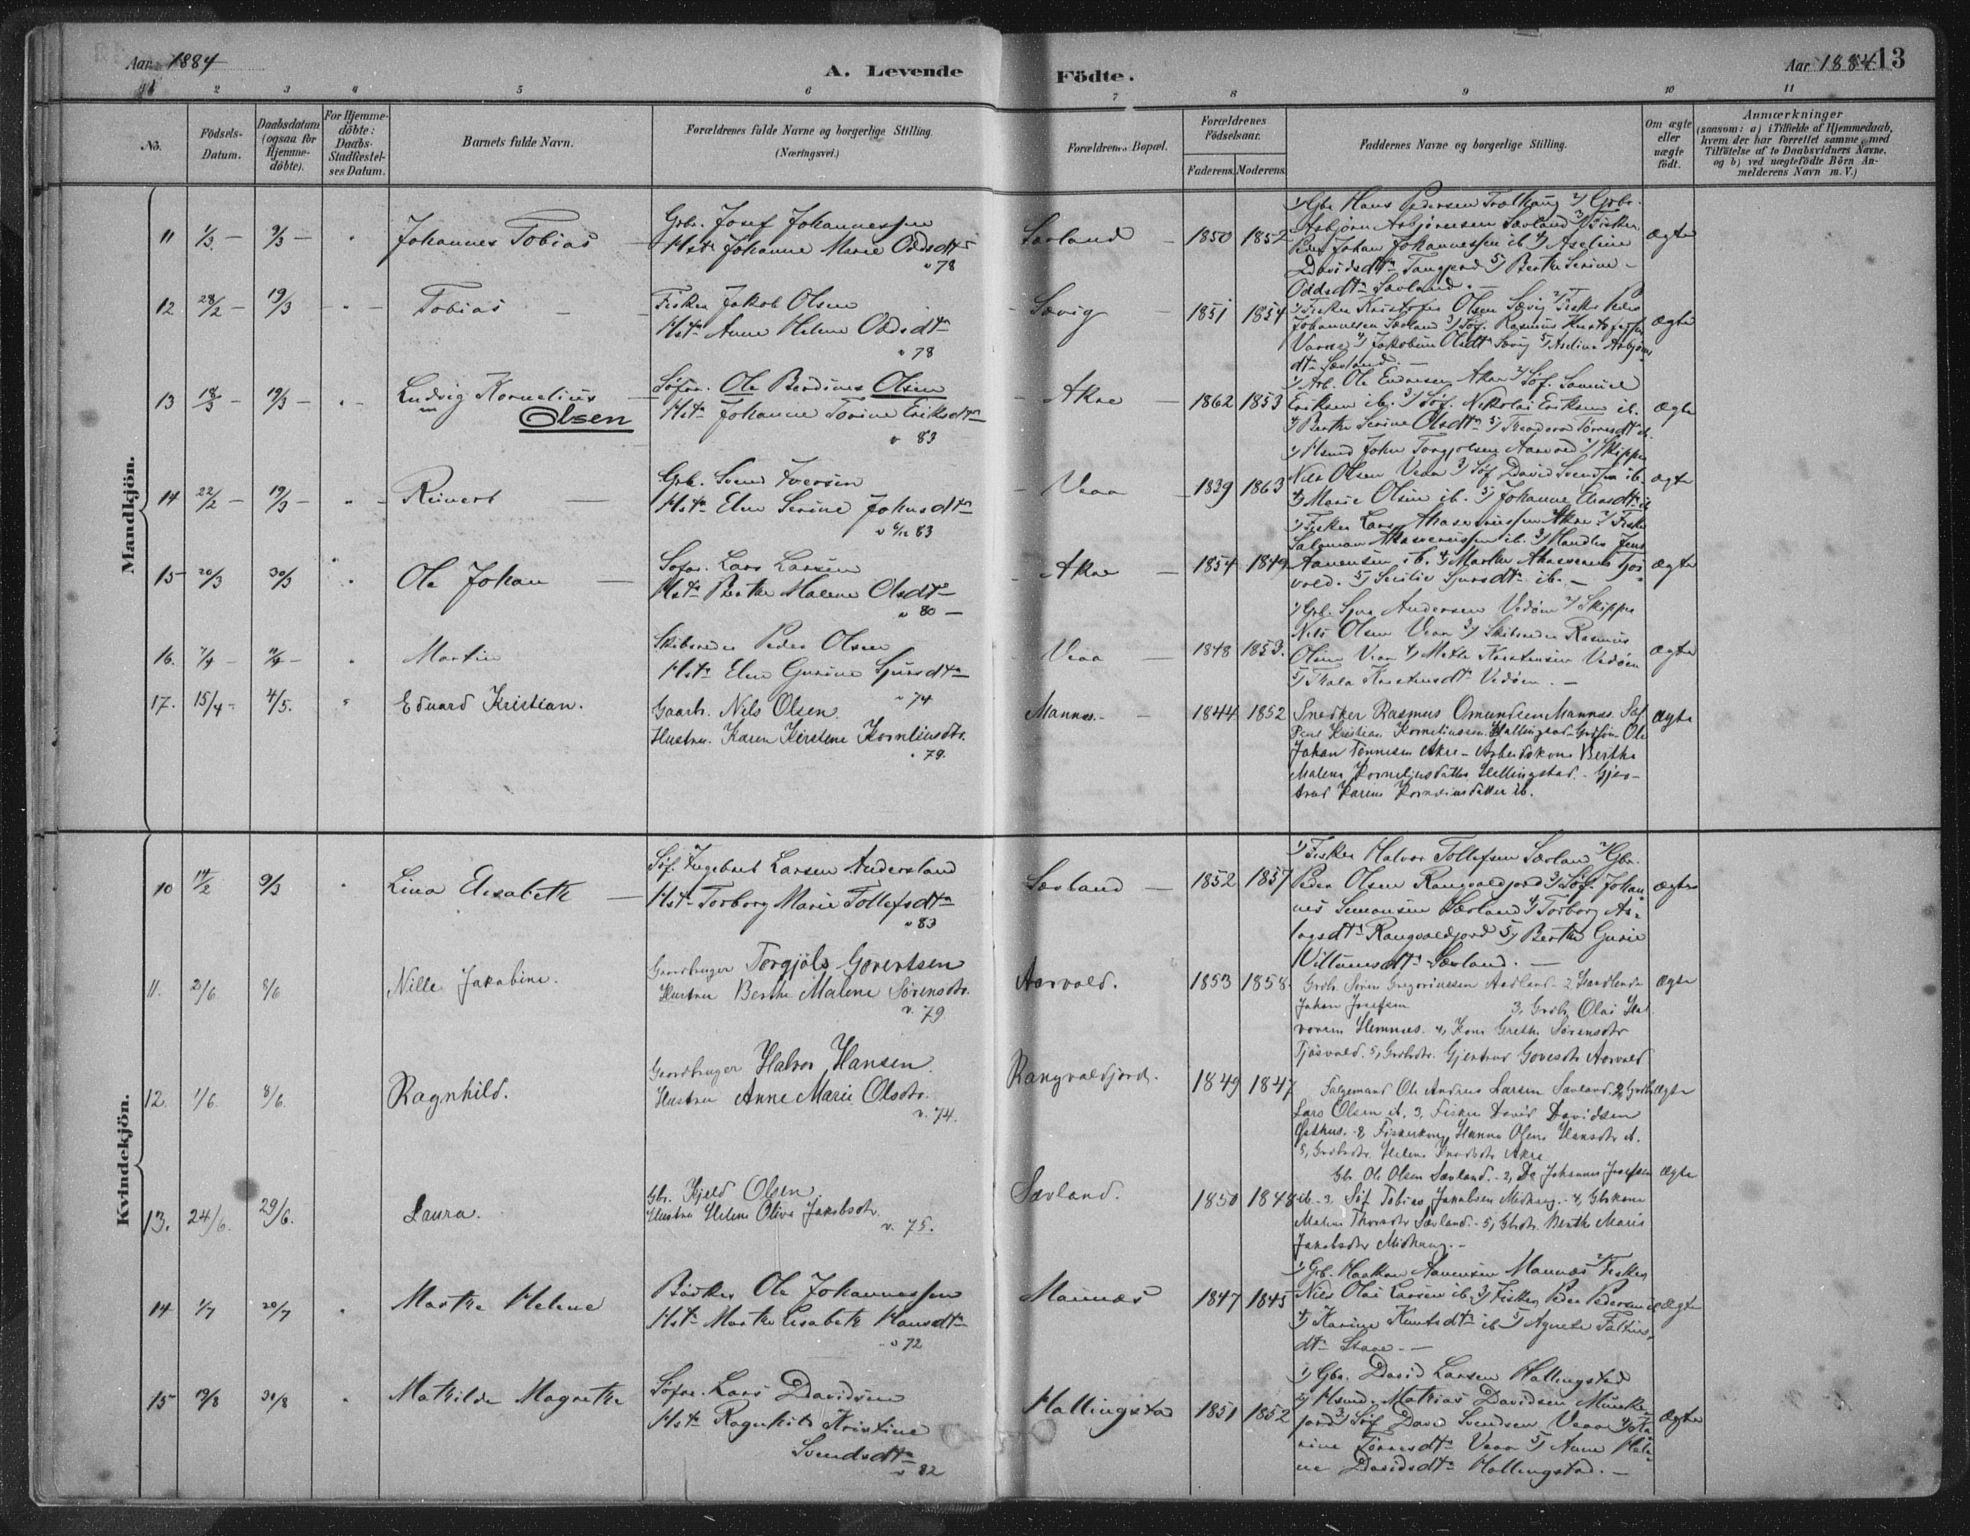 Aar 1884
A. Levende
Födte.
Aar 1884. 13
2 3 4 5 6 7 8 9 10 11
No.
Födsels-
Datum.
Daabsdatum
(ogsaa för
Hjemme-
döbte).
For Hjemme-
döbte:
Daabs-
Stadfæstel-
ses Datum.
Barnets fulde Navn.
Forældrenes fulde Navne og borgerlige Stilling.
(Næringsvei.)
Forældrenes Bopæl.
Forældrenes
Födselsaar.
Faderens. Moderens.
Faddernes Navne og borgerlige Stilling.
Om ægte
eller
uægte
födt.
Anmærkninger
(saasom: a) i Tilfælde af Hjemmedaab,
hvem der har forrettet samme med
Tilföielse af to Daabsvidners Navne,
og b) ved uægtefödte Börn An-
melderens Navn m. V.)
Mandkjön.
11 1/3 9/3
Johannes Tobias
Grbr. Josef Johannessen
Hst Johanne Marie Oddsdtr
v 78
Sævland 1850 1852
1/ Gbr Hans Pedersen 2/ Grbr.
Asbjørn Asbjørnsen Sævland 3/ Fisker
Peder Johan Johannessen ib 4/ Aseline
Davidsdtr 5/ Berthe Serine
Oddsdtr Sævland.
Ægte
12 28/2 19/3
Tobias
Fisker Jakob Olsen
Hst Anne Helene Oddsdtr
v 78
Sævig 1851 1854
1/ Fisker Kristofer Olsen Sævig 2/ Fisker Peder
Johannessen Sævland 3/ Søf. Rasmus Kristofersen
4/ Jakobine Olsdtr Sævig 5/ Aseline Asbjørns
dtr Sævland.
Ægte
13 18/3 19/3
Ludvig Kornelius
Olsen
Søfar. Ole Berdines Olsen
Hst Johanne Torine Eriksdtr
v 83
Akre 1862 1853
1/ Arb. Ole Endresen Akre 2/ Søf. Samuel
Eriksen ib. 3/ Søf. Nikolai Eriksen ib.
4/ Berthe Serine Olsdtr 5/ Theodora Tørresdtr ib.
Ægte
14 22/2 19/3
Reinert
Grb. Svend Iversen
Hst Elen Serine Johnsdtr
v 6/12 83
Veaa 1839 1863
1/ Hsmd John Torgjelsen Aarvod 2/ Skipper
Nils Olsen Veaa 3/ Søf. David Svendsen ib.
4/ Marie Olsen ib. 5/ Johanne Eliasdtr ib
Ægte
15 20/3 30/3
Ole Johan
Søfar. Lars Larsen
Hst Berthe Malene Olsdtr
v 80
Akre 1854 1849
1/ Fisker Lars Ahasverussen Akre 2/ Fisker
Salomon Ahasverussen ib. 3/ Handler Jens
Aanensen ib. 4/ Marthe Ahasverus
5/ Secilie Sjursdtr ib.
Ægte
16. 7/4 11/4
Martin
Skibsreder Peder Olsen
Hst Elen Gurine Sjursdtr
v 74
Veaa 1848 1853.
1/ Grb. Sjur Andersen Vedøen 2/ Skipper
Nils Olsen Veaa 3/ Skibsreder Rasmus
Olsen Veaa 4/ Mette Kristensen Vedøen
5/ Thala Kristensdtr Vedøen.
Ægte
17. 15/4 4/5.
Eduard Kristian.
Gaarb. Nils Olsen
Hustru. Karen Kirstene Korneliusdtr.
v. 79.
Mannes 1844 1852
Snedker Rasmus Omundsen Mannes. Søf
Kristian Korneliussen Hallingstad Ole
Johan Tønnesen Akre Arbeidskone Berthe
Malene Korneliusdatter Hellingstad. Gjer-
trud Karine Korneliusdatter ib.
Ægte
Kvindekjön.
10 14/2 9/3
Lina Elisabeth
Søf. Ingebret Larsen Andersland
Hst Torborg Marie Tollefsdtr
v 83
Sævland 1852 1857
1/ Fisker Halvor Tollefsen Sævland 2/ Gbr.
Peder Olsen Rangvaldjord 3/ Søf. Johan-
nes Simonsen Sævland 4/ Torborg As-
lagsdtr Rangvaldjord 5/ Berthe Gurie
Villumsdtr Sævland.
Ægte
11. 2/6 8/6
Nille Jakobine.
Gaardbruger Torgjøls Govertsen
Hustru Berthe Malene Sørensdtr.
v. 79
Aarvold. 1853 1858.
Grdb. Søren Gregoriussen Aadland 2, Handlende
Johan Josefsen 3, Grdb. Olai Hal
vorsen Hemnes. 4, Kone Grethe Sørensdtr
Tjøsvold. 5, Grdbdtr. Gjertrud Govesdtr Aarvold
Ægte
12. 1/6 8/6.
Ragnhild.
Gaardbruger Halvor Hansen.
Hustru Anne Marie Olsdtr.
v. 74.
Rangvaldjord. 1849 1847
Ole Andreas Larsen Sævland. 2, Grdb.
Lars Olsen ib. 3, Fisker David Davidsen
Østhus. 4, Fiskerkone Hanna Olene Hansdtr ib.
5, Grdbdtr. Helene Akre
Ægte
13. 24/6. 29/6.
Laura.
Gbr. Kjeld Olsen
Hustru Helene Olive Jakobsdtr.
v. 75.
Sævland. 1850 1848
Gb. Ole Olsen Sævland. 2, Do Johannes Josefsen
ib. 3, Søf Tobias Jakobsen Midhaug. 4, Gbskone
Malene Thorsdtr Sævland. 5, Gbdtr. Berthe Marie
Jakobsdtr Midhaug.
Ægte
14 1/7 20/7
Marthe Helene
Bødker Ole Johannessen
Hst Marthe Lisabeth Hansdtr
v 72
Mannæs 1847 1845
1/ Grb. Haakon Aanensen Mannæs 2/ Fisker
Nils Olai Larsen ib. 3/ Fisker Peder Pedersen ib
4/ Karine Knutsdtr ib 5/ Agnete
dtr Stave
Ægte
15 9/8 31/8
Mathilde Magrethe
Søfar. Lars Davidsen
Hst Ragnhild Kristine
Svendsdtr
v 82
Hallingstad 1851 1852
1/ Gbr. David Larsen Hallingstad
2/ Hsmd. Mathias Davidsen Munke-
jord 3/ Søf David Svendsen Veaa 4/ Ka-
rine Tørresdtr Veaa 5/ Anne Hele-
ne Davidsdtr Hallingstad.
Ægte